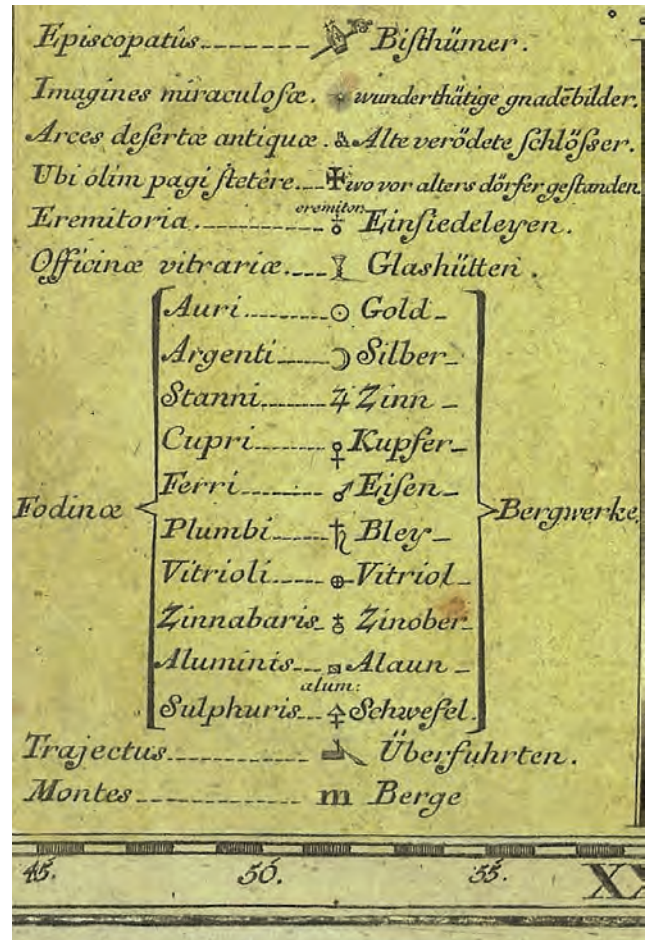 Episcopatûs Biſthümer.
Imagines miraculoſæ. wunderthätige gnadēbilder.
Arces deſertæ antiquæ. Alte verödete ſchlöſser.
Ubi olim pagi ſtetêre. wo vor alters dörfer geſtanden
Eremitoria. eremitor: Einſiedeleyen.
Officinæ vitrariæ. Glashütten.
Auri ☉ Gold_
Argenti ☽ Silber_
Stanni ♃ Zinn_
Cupri ♀ Kupfer_
Ferri ♂ Eiſen_
Fodinæ Bergwerke.
Plumbi ♄ Bley_
Vitrioli Vitriol_
Zinnabaris Zinober_
Aluminis Alaun_
alum:
Sulphuris Schwefel.
Trajectus Überfuhrten.
Montes m Berge
45. 50. 55. XX